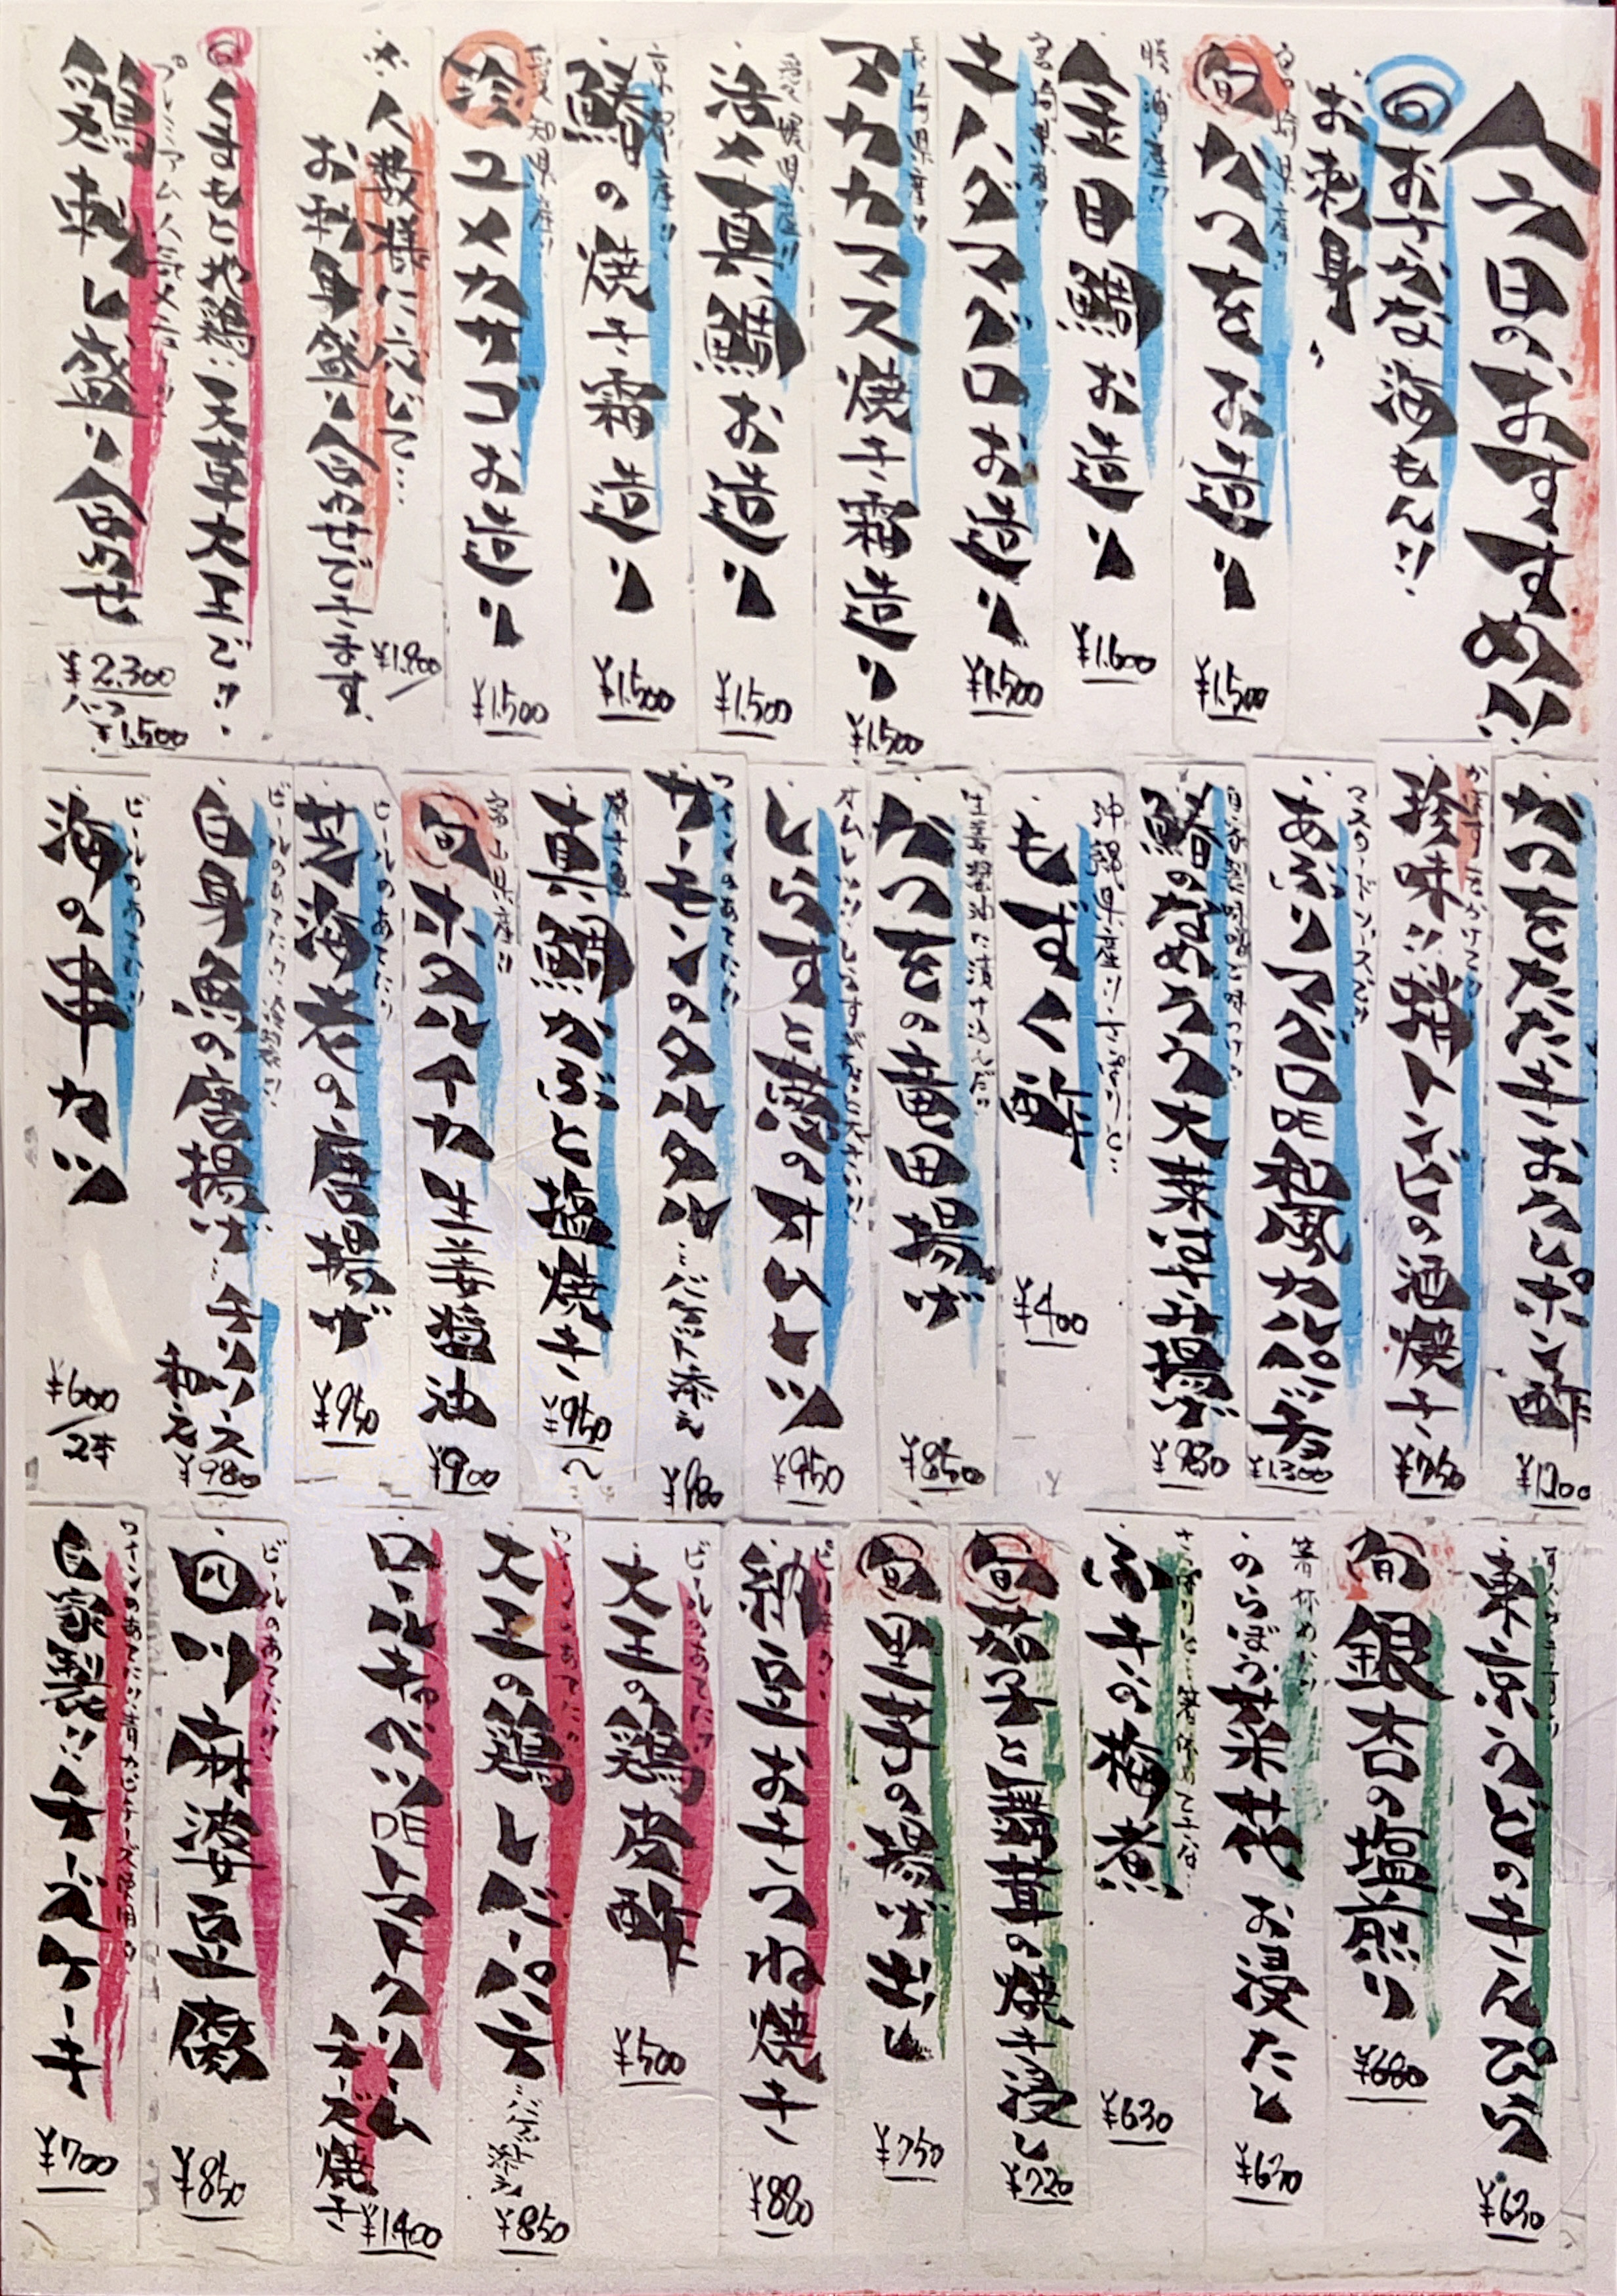 今日のおすすめ!!
旬おさかな海もん!!
お刺身
宮崎県産!!
旬かつをお造り
¥1.500
勝浦産!!
金目鯛お造り
¥1.600
宮崎県産!!
キハダマグロお造り
¥1.500
長崎県産!!
アカカマス焼き霜造り
¥1.500
愛媛県産!!
活〆真鯛お造り
¥1.500
京都産!!
鰆の焼き霜造り
¥1.500
愛知県産!!
珍ユメカサゴお造り
¥1.500
人数様に応じて…
お刺身盛り合わせできます。
¥1.800
くまもと地鶏!!天草大王で!!
プレミアム人気メニュー!!
鶏刺し盛り合わせ
¥2.300
ハーフ
¥1.500
かつをたたきおろしポン酢
¥1.100
珍味!!鮹トンビの酒焼き
¥750
マスタードソースで!!
あぶりマグロDE和風カルパッチョ
¥1.300
鰆のなめろう大葉はさみ揚げ
¥930
沖縄県産!!さっぱりと!!
もずく酢
¥400
生姜醤油に漬け込んだ!!
かつをの竜田揚げ
¥850
しらすと葱のオムレツ
¥950
ワインのあてに!!
サーモンのタルタル…バゲット添え
¥980
真鯛かぶと塩焼き
¥950〜
富山県産!!
旬ホタルイカ生姜醤油
¥900
ビールのあてに!!
芝海老の唐揚げ
¥950
ビールのあてに!!
白身魚の唐揚げ…チリソース
和え
¥980
ビールのあてに!!
海の串カツ
¥600/2本
東京うどのきんぴら
¥630
旬銀杏の塩煎り
¥680
箸休めに!!
のらぼう菜花お浸たし
¥630
ふきの梅煮
¥630
旬茄子と舞茸の焼き浸し
¥720
旬里芋の揚げ出し
¥750
納豆おきつね焼き
¥880
ビールのあてに!!
大王の鶏皮酢
¥500
ワインのあてに!!
大王の鶏レバーパテ…バゲット添え
¥850
ロールキャベツDEトマトクリーム
チーズ焼き
¥1.400
ビールのあてに!!
四川麻婆豆腐
¥850
ワインのあてに!!青カビチーズ使用
自家製!!チーズケーキ
¥700